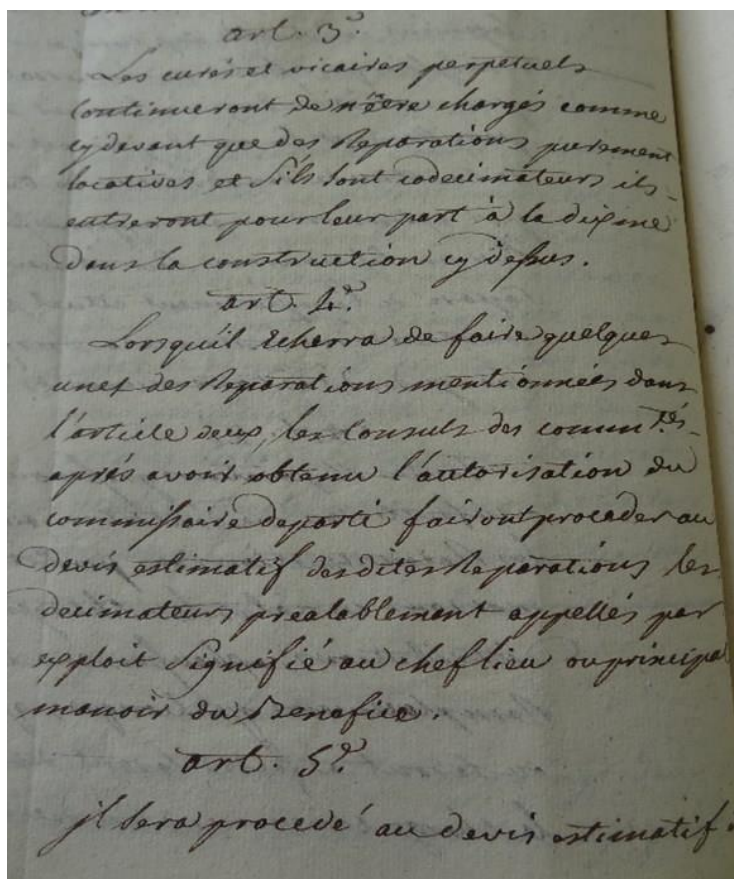 art. 3e.
Les curés et vicaires perpetuels
Continueront de n'être chargés comme
cy devant que des Reparations purement
locatives et s'ils sont codecimateurs ils
entreront pour leur part à la dixme
dans la construction cy dessus.
art. 4e.
Lorsqu'il Echerra de faire quelques
unes des Reparations mentionnées dans
l'article deux, les Consuls des commun.tés
aprés avoir obtenu l'autorisation du
commissaire departi fairont proceder au
devis estimatif desdites Reparations les
decimateurs prealablement appellés par
exploit signifié au cheflieu ou principal
manoir du Benefice.
art. 5e.
jl sera procedé au devis estimatif.